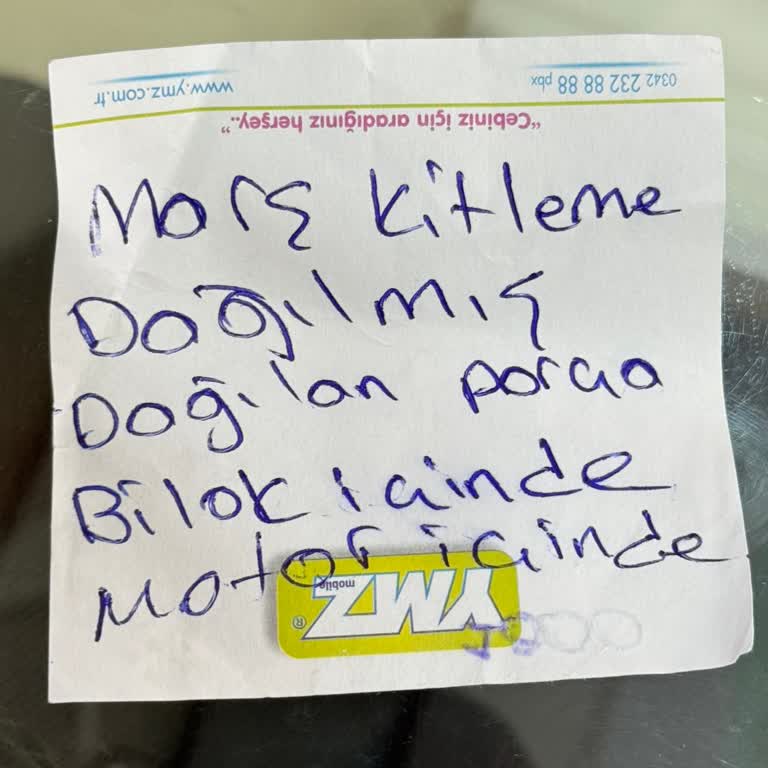 www.ymz.com.tr
0342 232 88 88 pbx
"Cebiniz için aradığınız herşey.."
Marş kitleme
Dağılmış
Dağılan parça
Bilok içinde
Motor içinde
YMZ mobile ®